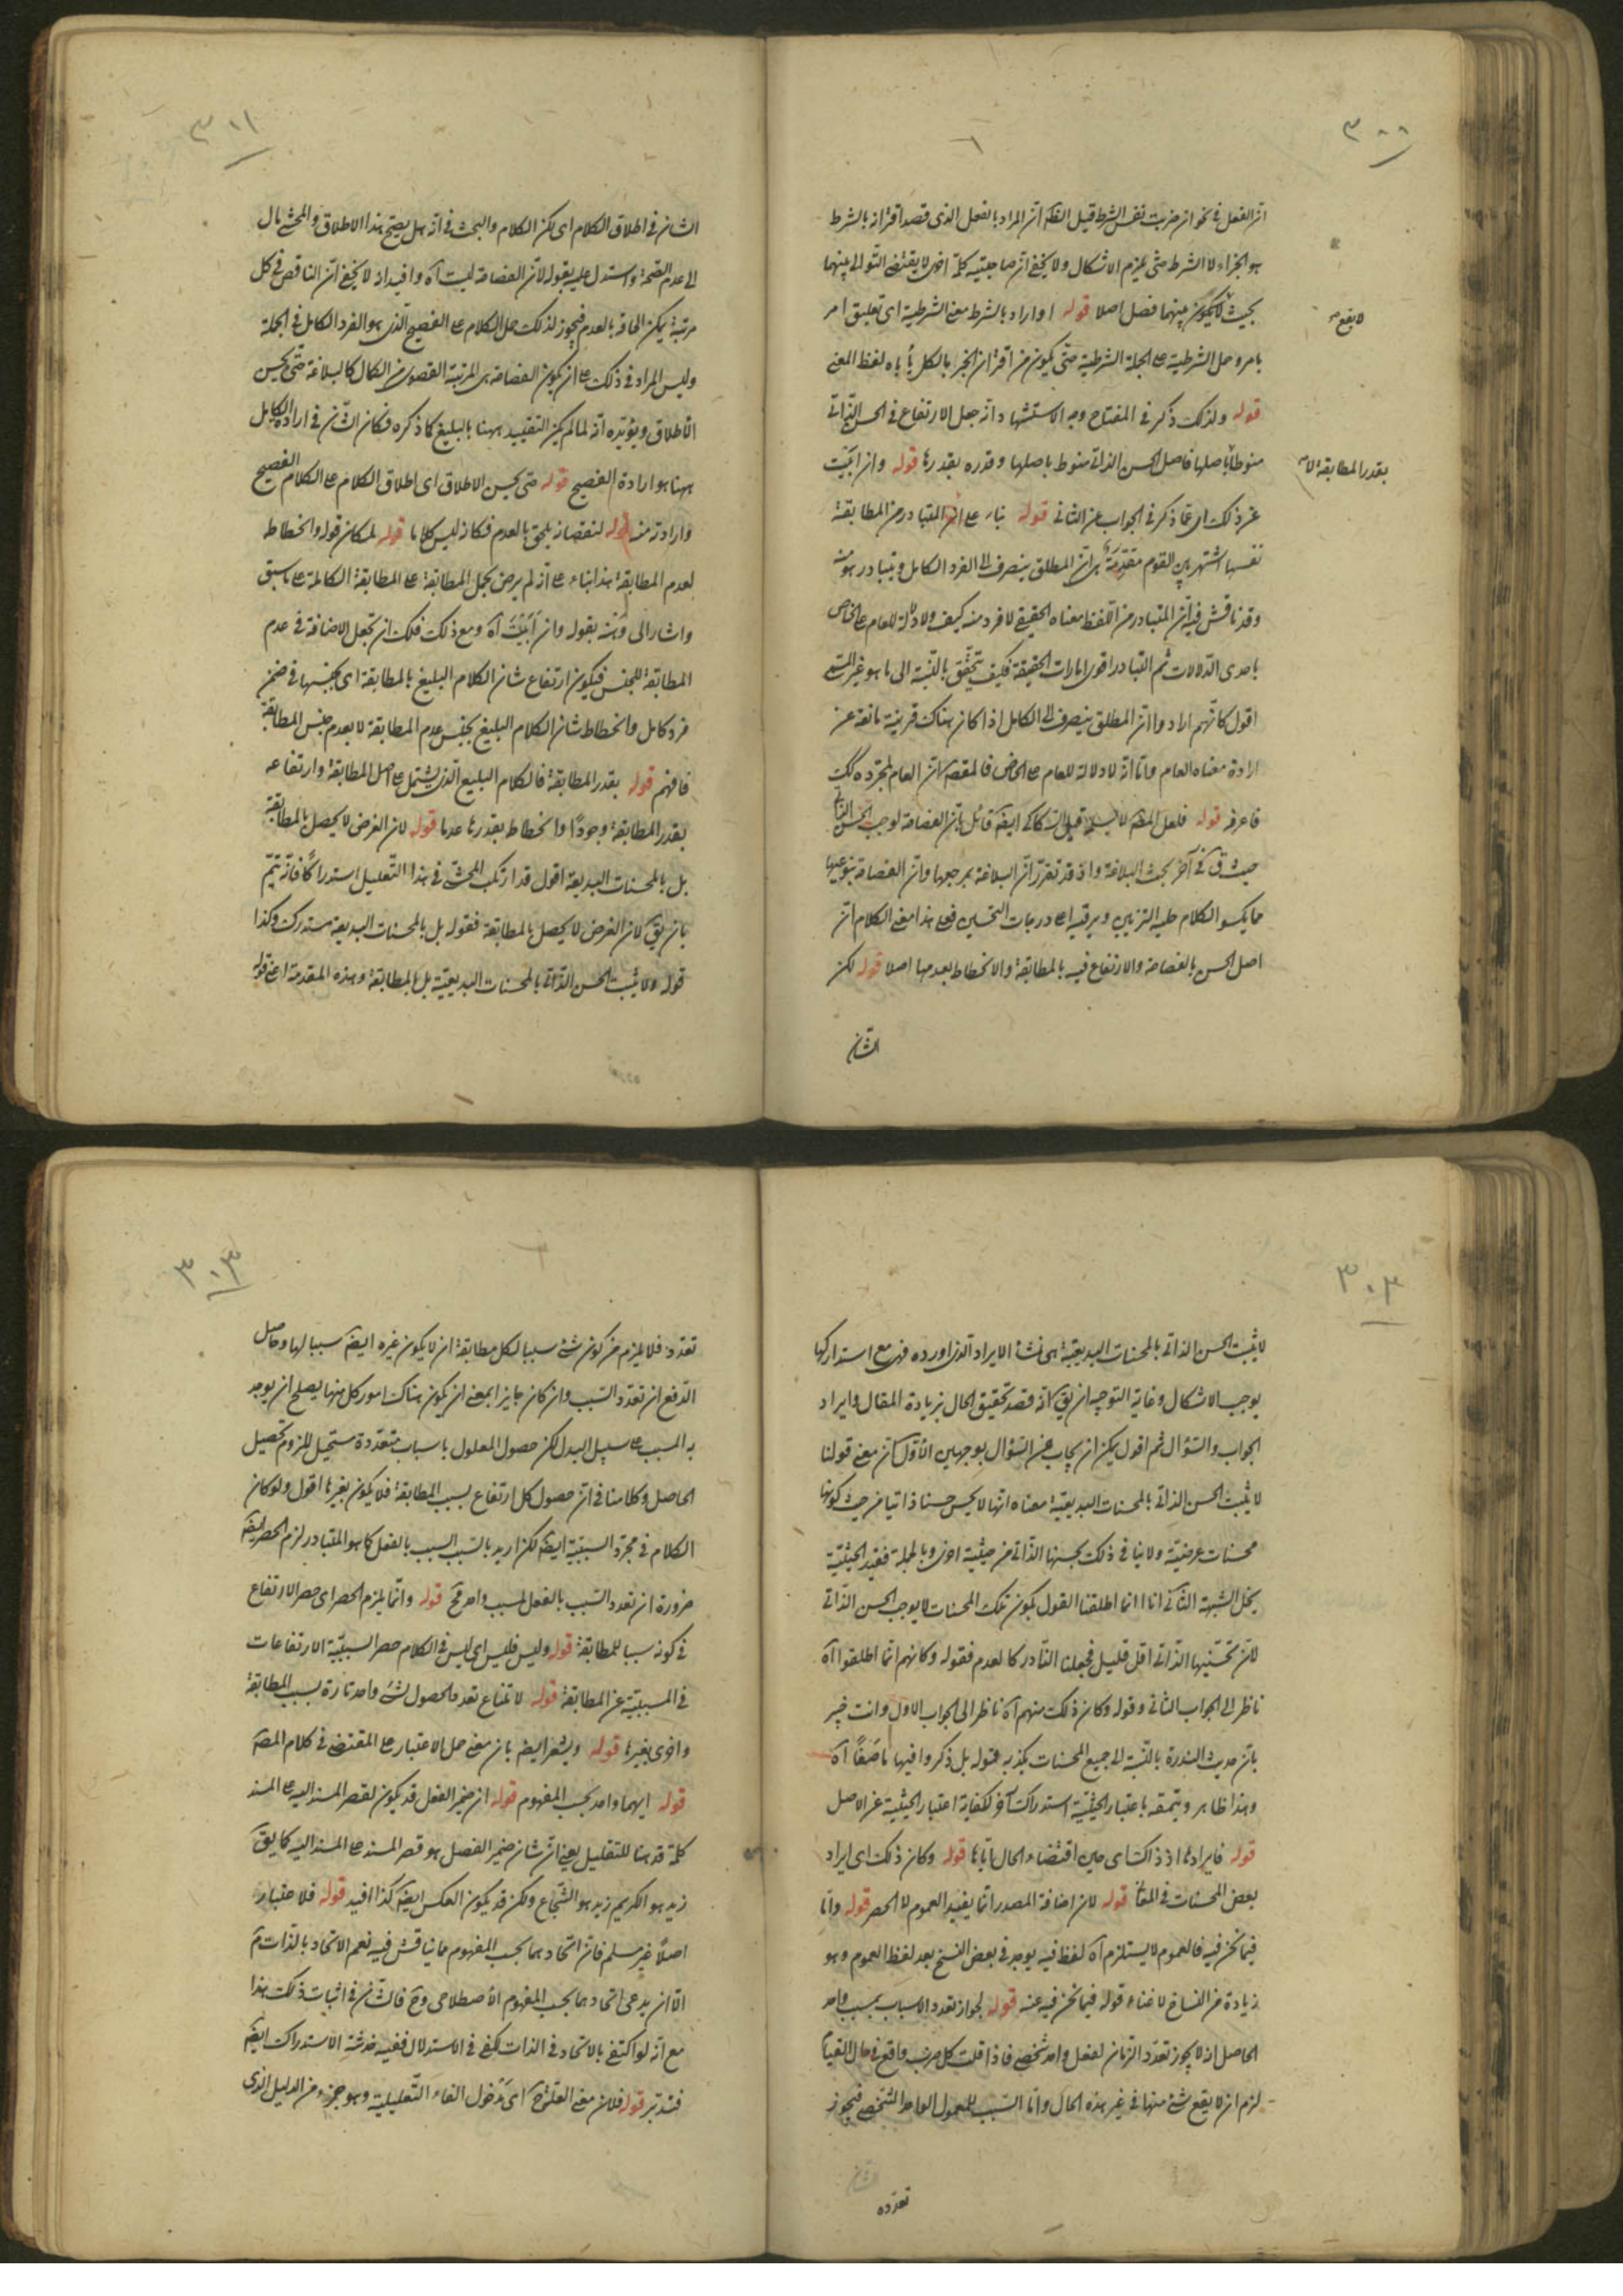 ٣٠٠
ان الفعل في نحو ان ضربت نفس الشرط قيل القلة ان المراد بالفعل الذي قصد اقترانه بالشرط
هو الجزاء لا الشرط حتى يلزم الاشكال ولا يخفى ان مصاحبته كلمة اخرى لا يقتضى التوالى بينهما
بحيث لا يكون بينهما فصل اصلا قوله او اراد بالشرط معنى الشرطية اى تعليق امر
لا يقع
بامر وحمل الشرطية على الجملة الشرطية حتى يكون من اقتران الجزء بالكل يأباه لفظ المعنى
قوله ولذلك ذكر في المفتاح وجه الاستشهاد انه جعل الارتفاع في الحسن الذاتى
منوطا باصلها فاصل الحسن الذاتى منوط باصلها وقدره بقدرها قوله وان ابيت
بقدر المطابقة الا
عن ذلك اى عما ذكر في الجواب عن الثانى قوله بناء على ان المتبادر من المطابقة
نفسها اشتهر بين القوم مقدمة هى ان المطلق ينصرف الى الفرد الكامل ويتبادر هو منه
وقد ناقش فيه ان المتبادر من اللفظ معناه الحقيقى لا فرد منه كيف ولا دلالة للعام على الخاص
باحدى الدلالات ثم التبادر اقوى امارات الحقيقة فكيف يتحقق بالنسبة الى ما هو غير المستعمل
اقول كانهم ارادوا ان المطلق ينصرف الى الكامل اذا كان هناك قرينة مانعة عن
ارادة معناه العام واما انه لا دلالة للعام على الخاص فالمقصود ان العام بمجرده كذلك
فاعرف قوله فلعل المص لا يسلم قيل السكاكى ايضا قائل بان الفصاحة لوجب الحسن الذاتى
حيث ق في آخر بحث البلاغة واذ قد تقرر ان البلاغة بمرجعها وان الفصاحة بنوعيها
مما يكسو الكلام حلية التزيين ويرقيه اعلى درجات التحسين فعلى هذا معنى الكلام ان
اصل الحسن بالفصاحة والارتفاع فيه بالمطابقة والانحطاط بعدمها اصلا قوله لكن
الشان
٣٠١
الشان في اطلاق الكلام اى لكن الكلام والبحث في انه هل يصح هذا الاطلاق والمحشى مال
الى عدم الصحة واستدل عليه بقوله لان الفصاحة ليست آه وافيد انه لا يخفى ان الناقص في كل
مرتبة يمكن الحاقه بالعدم فيجوز لذلك حمل الكلام على الفصيح الذى هو الفرد الكامل في الجملة
وليس المراد في ذلك على ان يكون الفصاحة هى المرتبة القصوى من الكمال كالبلاغة حتى يحسن
الاطلاق ويؤيده انه لما لم يكن التقييد ههنا بالبليغ كما ذكره فكان الشان في ارادة الكامل
ههنا هو ارادة الفصيح قوله حتى يحسن الاطلاق اى اطلاق الكلام على الكلام الفصيح
وارادته منه قوله لنقصانه يلحق بالعدم فكانه ليس كلاما قوله لمكان قوله وانحطاطه
لعدم المطابقة هذا بناء على انه لم يرض بحمل المطابقة على المطابقة الكاملة على ما سبق
واشار الى وهنه بقوله وان أبيت آه ومع ذلك فلك ان تجعل الاضافة في عدم
المطابقة للجنس فيكون ارتفاع شان الكلام البليغ بالمطابقة اى بجنسها في ضمن
فرد كامل وانحطاط شان الكلام البليغ بجنس عدم المطابقة لا بعدم جنس المطابقة
فافهم قوله بقدر المطابقة فالكلام البليغ الذى يشتمل على اصل المطابقة وارتفاعه
بقدر المطابقة وجودا وانحطاطه بقدرها عدما قوله لان الغرض لا يحصل بالمطابقة
بل بالمحسنات البديعية اقول قد ارتكب المحشى في هذا التعليل استدراكا فانه يتم
بان يق لان الغرض لا يحصل بالمطابقة فقوله بل بالمحسنات البديعية مستدرك وكذا
قوله ولا يثبت الحسن الذاتى بالمحسنات البديعية بل بالمطابقة وهذه المقدمة اعنى قوله
٣٠٢
لا يثبت الحسن الذاتى بالمحسنات البديعية هى منشأ الايراد الذى اورده فهى مع استدراكها
يوجب الاشكال وغاية التوجيه ان يق انه قصد تحقيق الحال بزيادة المقال وايراد
الجواب والسؤال ثم اقول يمكن ان يجاب عن السؤال بوجهين الاول ان معنى قولنا
لا يثبت الحسن الذاتى بالمحسنات البديعية معناه انها لا يحسن حسنا ذاتيا من حيث كونها
محسنات عرضية ولا ينافى ذلك تحسنها الذاتى من حيثية اخرى وبالجملة فقيد الحيثية
يحل الشبهة الثانى انا انما اطلقنا القول بكون تلك المحسنات لا يوجب الحسن الذاتى
لان تحسينها الذاتى اقل قليل فجعلنا النادر كالعدم فقوله وكانهم انما اطلقوا آه
ناظر الى الجواب الثانى وقوله وكان ذلك منهم آه ناظر الى الجواب الاول وانت خبير
بان حديث الندرة بالنسبة الى جميع المحسنات يكذبه قوله بل ذكروا فيها ما صَفَا آه
وهذا ظاهر ويتمه باعتبار الحيثية استدراك آخر لكفاية اعتبار الحيثية عن الاصل
قوله فايرادها اذ ذاك اى حين اقتضاء الحال اياها قوله وكان ذلك اى ايراد
بعض المحسنات في المعا قوله لان اضافة المصدر انما يفيد العموم لا الحصر قوله واما
فيما نحن فيه فالعموم لا يستلزم آه لفظ فيه يوجد في بعض النسخ بعد لفظ العموم وهو
زيادة من النساخ لا غناء قوله فيما نحن فيه عنه قوله لجواز تعدد الاسباب لمسبب واحد
الحاصل انه لا يجوز تعدد الزمان لفعل واحد شخصى فاذا قلت كل ضرب واقع في حال القيام
لزم ان لا يقع شئ منها في غير هذه الحال واما السبب للمعمول الواحد الشخصى فيجوز
تعدده
٣٠٣
تعدده فلا يلزم من كون شئ سببا لكل مطابقة ان لا يكون غيره ايضا سببا لها وحاصل
الدفع ان تعدد السبب وان كان جايزا بمعنى ان يكون هناك امور كل منها يصلح ان يوجد
به المسبب على سبيل البدل لكن حصول المعلول باسباب متعددة مستحيل للزوم تحصيل
الحاصل وكلامنا في ان حصول كل ارتفاع بسبب المطابقة فلا يكون بغيرها اقول ولو كان
الكلام في مجرد السببية ايضا لكن اريد بالسبب السبب بالفعل كما هو المتبادر لزم الحصر ايضا
ضرورة ان تعدد السبب بالفعل لمسبب واحد مح قوله وانما يلزم الحصر اى حصر الارتفاع
في كونه سببا للمطابقة قوله وليس فليس اى ليس في الكلام حصر السببية الارتفاعات
في المسببية عن المطابقة قوله لامتناع تعدد الحصول لشئ واحد تارة بسبب المطابقة
واخرى بغيرها قوله ويشعر ايضا بان معنى حمل الاعتبار على المقتضى في كلام المص
قوله ايهما واحد بحسب المفهوم قوله ان ضمير الفصل قد يكون لقصر المسند اليه على المسند
كلمة قد هنا للتقليل يعنى ان شان ضمير الفصل هو قصر المسند على المسند اليه كما يق
زيد هو الكريم زيد هو الشجاع ولكن قد يكون العكس ايضا كذا افيد قوله فلا اعتبار
اصلا غير مسلم فان اتحادهما بحسب المفهوم مما يناقش فيه نعم الاتحاد بالذات مسلم
الا ان يدعى اتحادهما بحسب المفهوم الاصطلاحى وح فالشان في اثبات ذلك هذا
مع انه لو اكتفى بالاتحاد في الذات لكفى في الاستدلال ففيه خدشة الاستدراك ايضا
فتدبر قوله فلان معنى العلة اى مدخول الفاء التعليلية وهو جزء من الدليل الذى